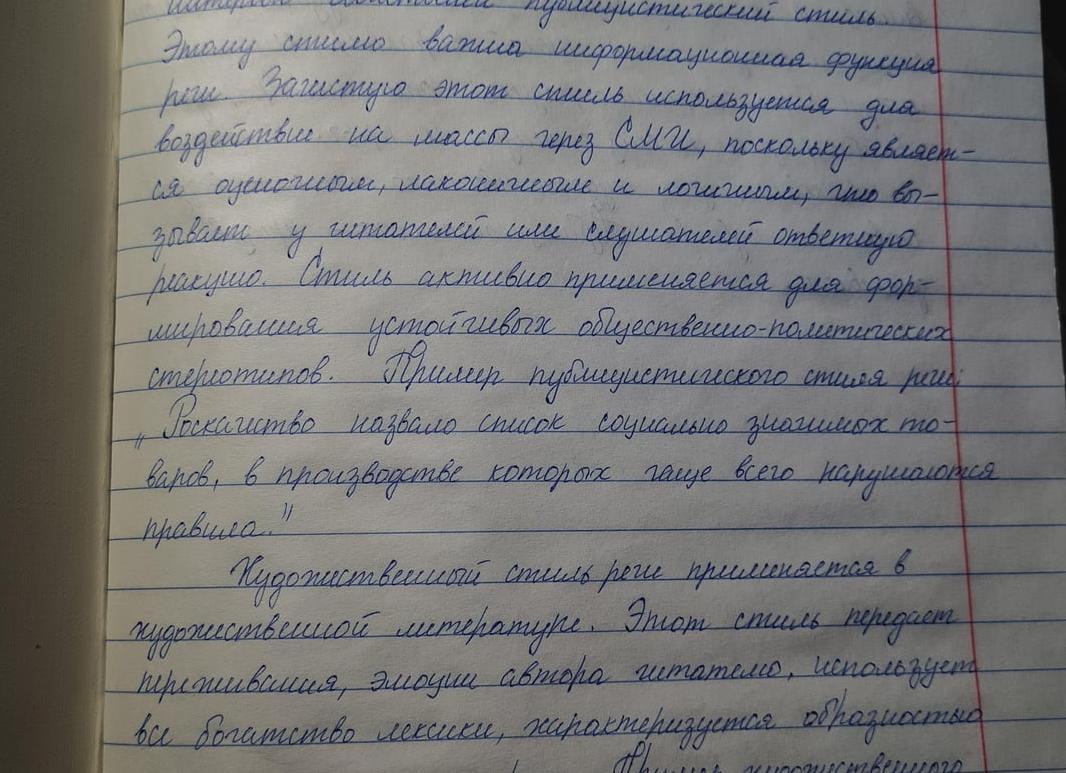 публицистический стиль
Этому стилю важна информационная функция
речи. Зачастую этот стиль используется для
воздействие на массы через СМИ, поскольку являет-
ся оценочным, лаконичным и логичным, что вы-
зывает у читателей или слушателей ответную
реакцию. Стиль активно применяется для фор-
мирования устойчивых общественно-политических
стереотипов. Пример публицистического стиля речи:
„Роскачество назвало список социально значимых то-
варов, в производстве которых чаще всего нарушаются
правила."
Художественный стиль речи применяется в
художественной литературе. Этот стиль передает
переживания, эмоции автора читателю, использует
все богатство лексики, характеризуется образностью
Пример художественного